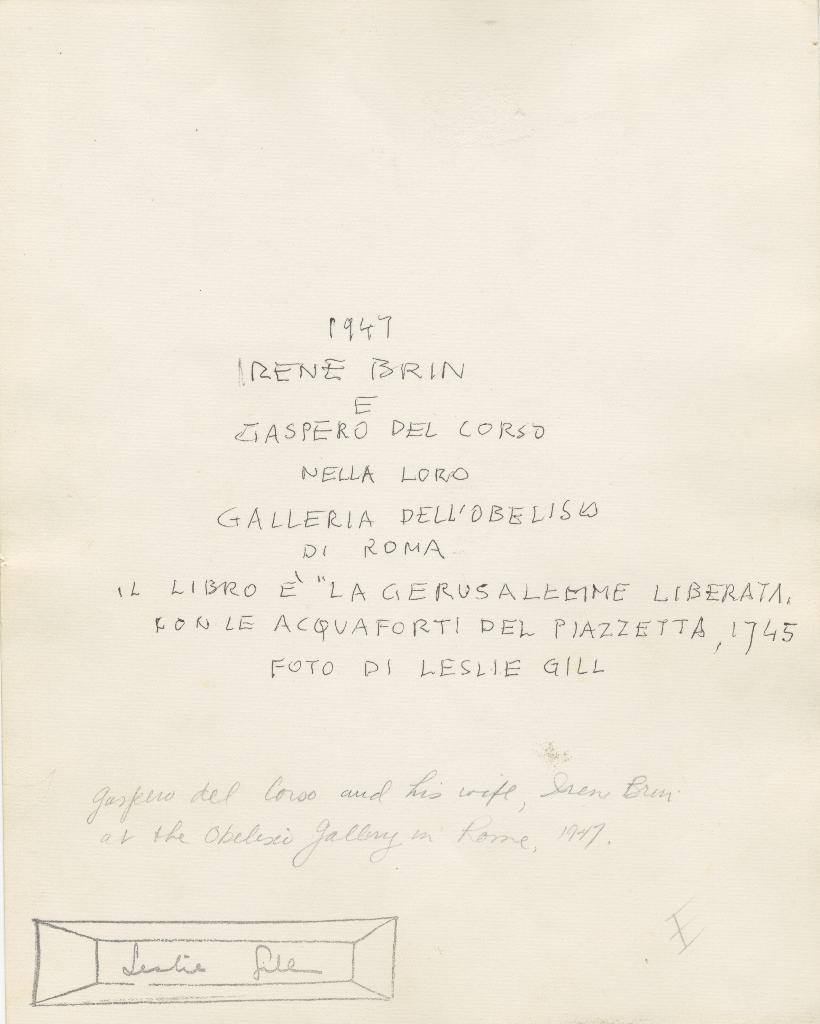 1947
IRENE BRIN
E
GASPERO DEL CORSO
NELLA LORO
GALLERIA DELL'OBELISCO
DI ROMA
IL LIBRO È "LA GERUSALEMME LIBERATA.
CON LE ACQUAFORTI DEL PIAZZETTA, 1745
FOTO DI LESLIE GILL
Gaspero del Corso and his wife, Iren Brin
at the Obelisco Gallery in Rome, 1947.
Leslie Gill